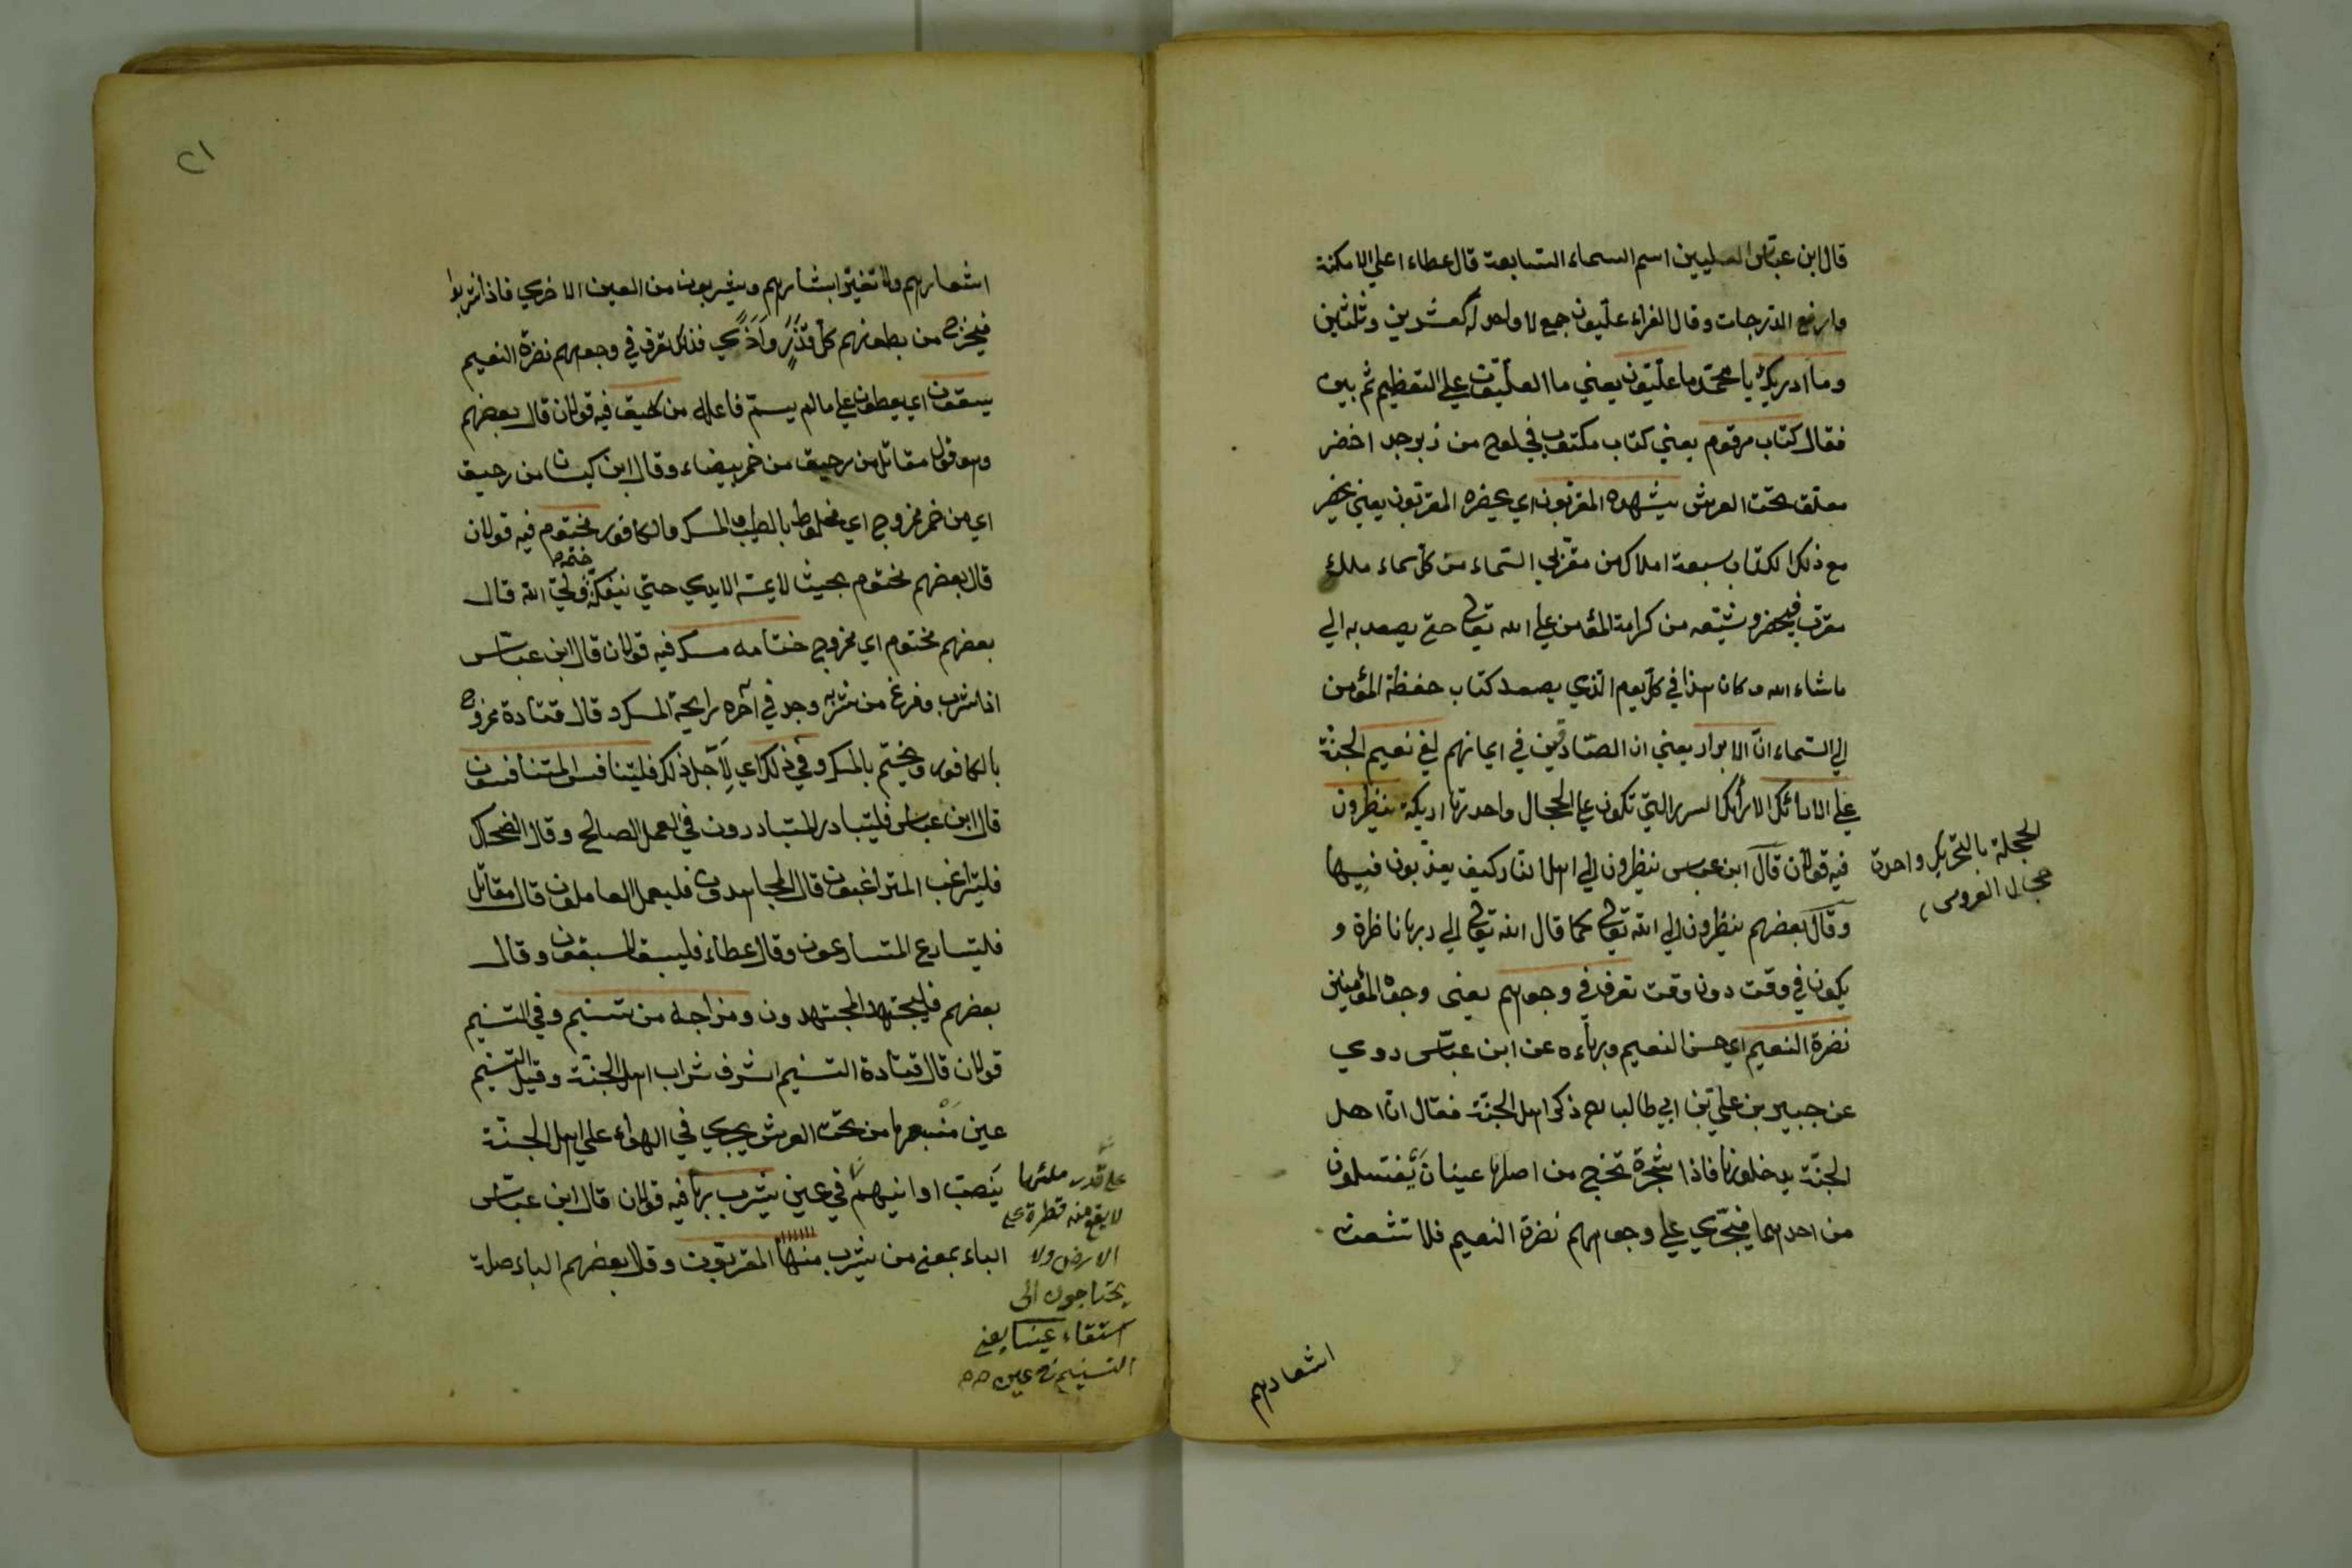 قال ابن عبّاس العليين اسم السماء السّابعة قال عطاء اعلي الامكنة
وارفع الدّرجات وقال الفراء علّيون جمع لا واحد له كعشرين وثلثين
وما ادريك يا محمّد ما علّيون يعني ما العلّيّون علي التعظيم ثم بين
فقال كتاب مرقوم يعني كتاب مكتوب في لوح من زبرجد اخضر
معلّق تحت العرش يشهده المقرّبون اي يحضره المقرّبون يعني يحضر
مع ذلك الكتاب سبعة املاك من مقرّبي السّماء من كل سماء ملك
مقرّب فيحضر وشيّعه من كرامة المؤمن علي الله تعالى حتى يصعد به الي
ما شاء الله وكان هذا في كلّ يوم الّذي يصعد كتاب حفظة المؤمن
الي السّماء انّ الابرار يعني ان الصّادقين في ايمانهم لفي نعيم الجنّة
علي الارائك الارائك السرر التي تكون علي الحجال واحدتها اريكة ينظرون
فيه قولان قال ابن عباس ينظرون الي اهل النار كيف يعذّبون فيها
وقال بعضهم ينظرون الي الله تعالى كما قال الله تعالى الي ربها ناظرة و
يكون في وقت دون وقت تعرف في وجوههم يعنى وجوه المؤمنين
نضرة النعيم اي حسن النعيم وبهاءه عن ابن عبّاس روي
عن جبير بن علي بن ابي طالب ذكر اهل الجنّة فقال انّ اهل
الجنّة يدخلونها فاذا شجرة تخرج من اصلها عينان يغتسلون
من احدهما فيجري علي وجوههم نضرة النعيم فلا تشعث
الحجلة بالتحريك واحدة
حجال العروس
اشعارهم
٢١
اشعارهم ولا تغيّر ابشارهم ويشربون من العين الاخري فاذا شربوا
فيخرج من بطونهم كل قذر واذي فذلك تعرف في وجوههم نضرة النعيم
يسقون اي يعطون علي ما لم يسمّ فاعله من رحيق فيه قولان قال بعضهم
وهو قول مقاتل من رحيق من خمر بيضاء وقال ابن كيسان من رحيق
اي من خمر ممزوج اي مخلوط بالطيب المسك والكافور مختوم فيه قولان
قال بعضهم مختوم بحيث لا يمسّه الايدي حتي يفكّ ختمه وليّ الله قال
بعضهم مختوم اي ممزوج ختامه مسك فيه قولان قال ابن عباس
اذا شرب وفرغ من شربه وجد في آخره رايحة المسك وقال قتادة ممزوج
بالكافور ويختم بالمسك وفي ذلك اي لاجل ذلك فليتنافس المتنافسون
قال ابن عباس فليتبادر المتبادرون في العمل الصالح وقال الضحاك
فليتراغب المتراغبون قال المجاهدون فليعمل العاملون قال مقاتل
فليتسارع المتسارعون وقال عطاء فليسبق السبقون وقال
بعضهم فليجتهد المجتهدون ومزاجه من تسنيم وفي التسنيم
قولان قال قتادة التسنيم اشرف شراب اهل الجنّة وقيل التسنيم
عين منبعها من تحت العرش يجري في الهواء علي اهل الجنّة
ينصبّ اوانيهم في عين يشرب بها فيه قولان قال ابن عباس
الباء بمعنى من يشرب منها المقرّبون وقال بعضهم الباء صلة
على قدر ملئها
لا يقع منه قطرة على
الارض ولا
يحتاجون الى
استقاء عينا يعنى
التسنيم عين